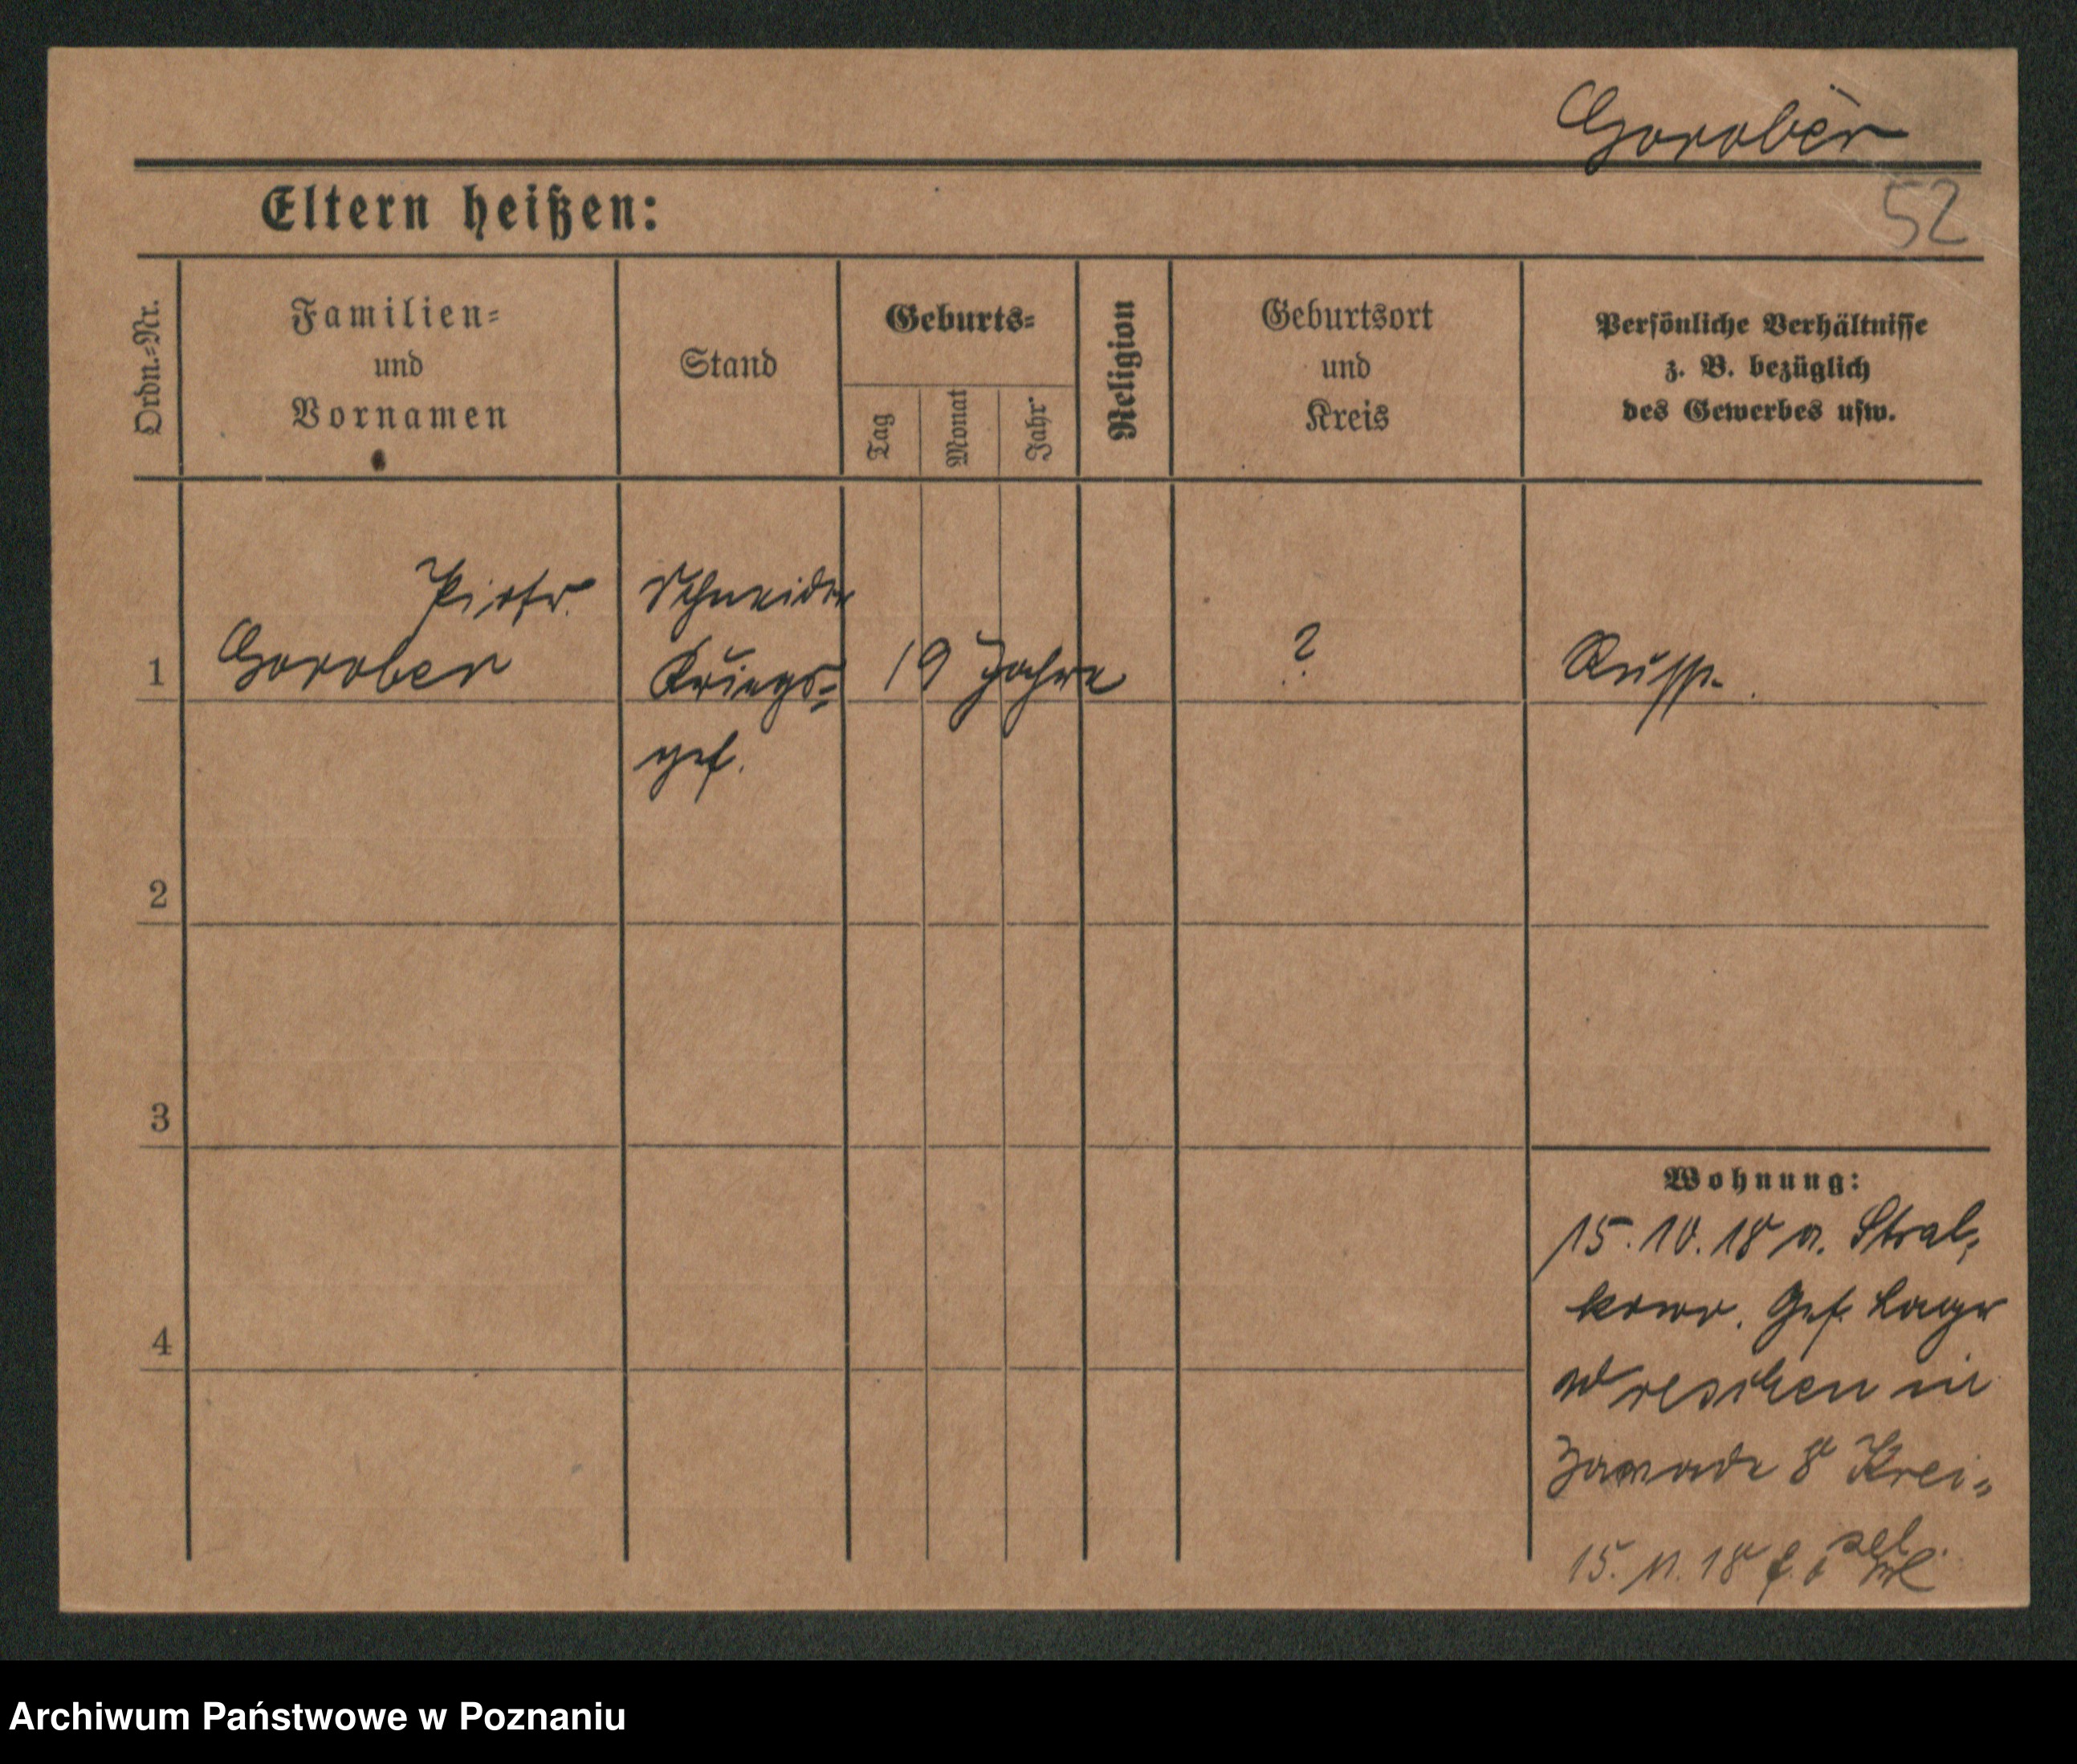 Gorobèr
52
Eltern heißen:
Ordn.=Nr.
Familien=
und
Vornamen
Stand
Geburts=
Tag
Monat
Jahr
Religion
Geburtsort
und
Kreis
Persönliche Verhältnisse
z. B. bezüglich
des Gewerbes usw.
Piotr
Schneider
1 Gorober Kriegs= 19 Jahre ? Russe.
gef.
2
3
4
Wohnung:
15.10.18 a. Stral=
kowo. Gef. Lager
Wreschen in
Zawade 8 Krei=
sel.
15. 11. 18
Archiwum Państwowe w Poznaniu